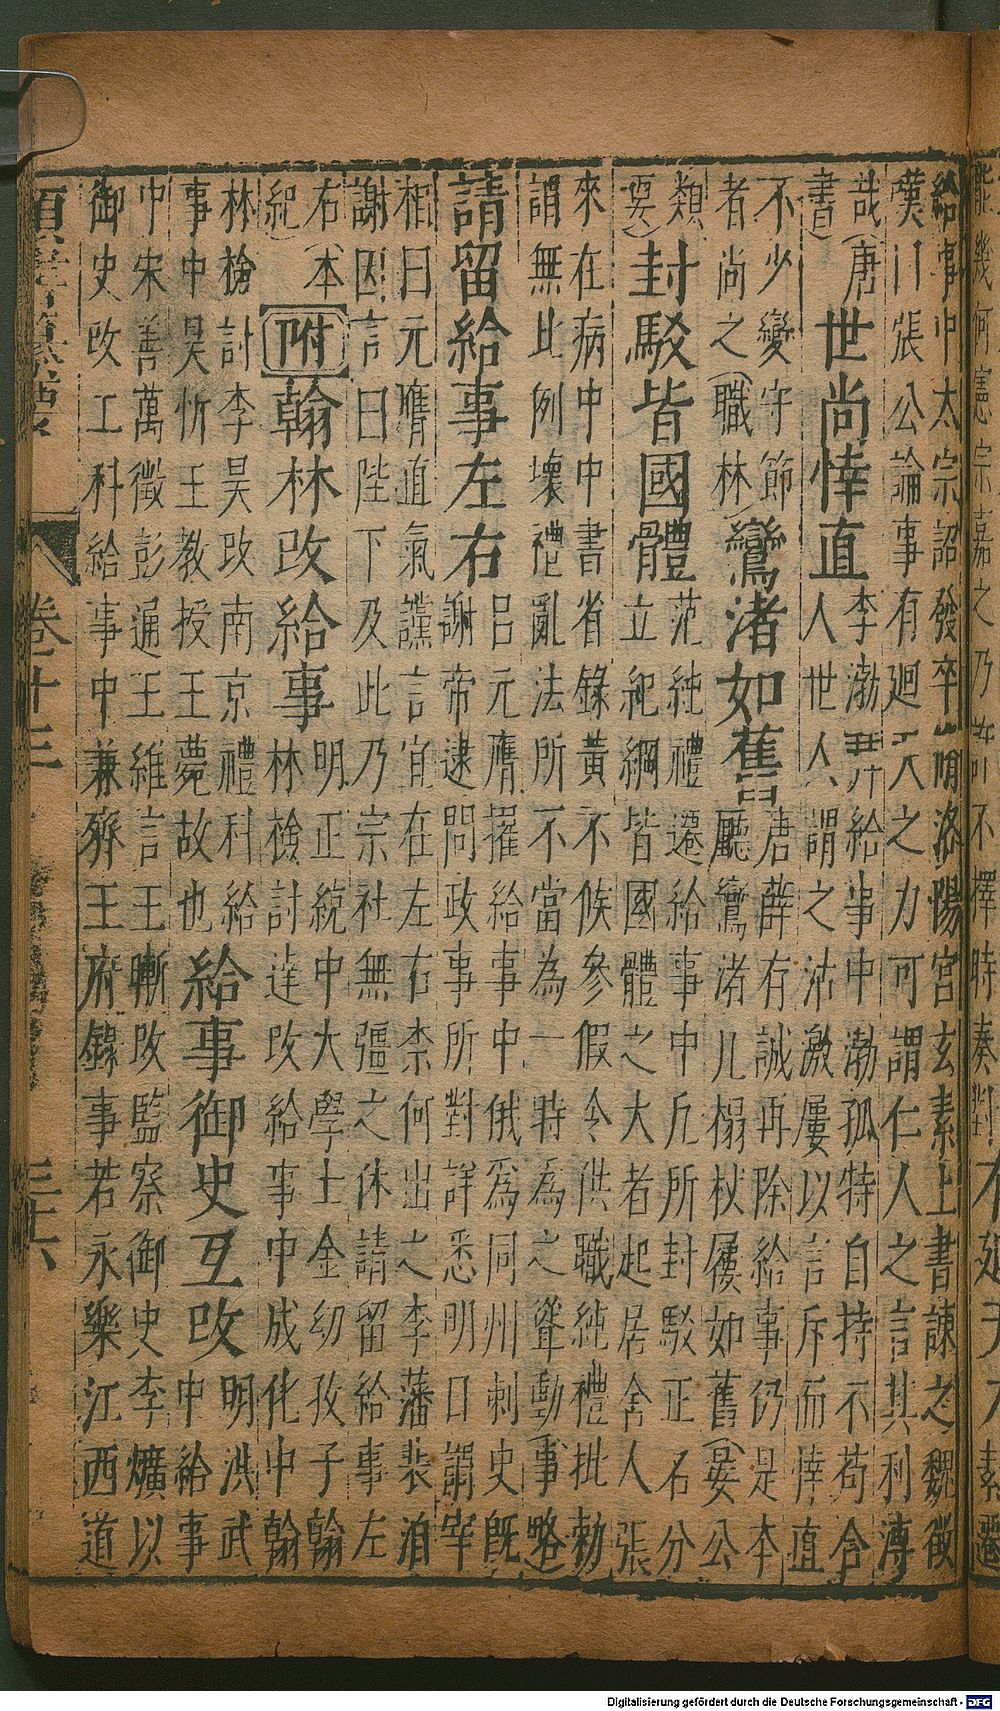 給事中太宗詔發卒脩洛陽宮玄素上書諫之魏徵
嘆曰張公論事有廻天之力可謂仁人之言其利溥
哉(唐
書)
世尚悻直
李渤拜給事中渤孤特自持不苟合
人世人謂之沽激屢以言斥而悻直
不少變守節
者尚之(職林)
鸞渚如舊
唐薛有誠再除給事仍是本
廳鸞渚几榻杖屨如舊(晏公
類
要)
封駁皆國體
范純禮遷給事中凡所封駁正名分
立紀綱皆國體之大者起居舍人張
來在病中中書省錄黃不候參假令供職純禮批勑
謂無此例壞禮亂法所不當為一時為之聳動(事略)
請留給事左右
呂元膺擢給事中俄爲同州刺史旣
謝帝逮問政事所對詳悉明日謂宰
相曰元膺直氣讜言宜在左右柰何出之李藩裴洎
謝因言曰陛下及此乃宗社無疆之休請留給事左
右(本
紀)
附
翰林改給事
明正統中大學士金幼孜子翰
林檢討達改給事中成化中翰
林檢討李昊改南京禮科給
事中吴忻王教授王薨故也
給事御史互改
明洪武
中給事
中宋善萬徵彭通王維言王嶄改監察御史李爌以
御史改工科給事中兼齊王府錄事若永樂江西道
卷十三
三十六
Digitalisierung gefördert durch die Deutsche Forschungsgemeinschaft - DFG